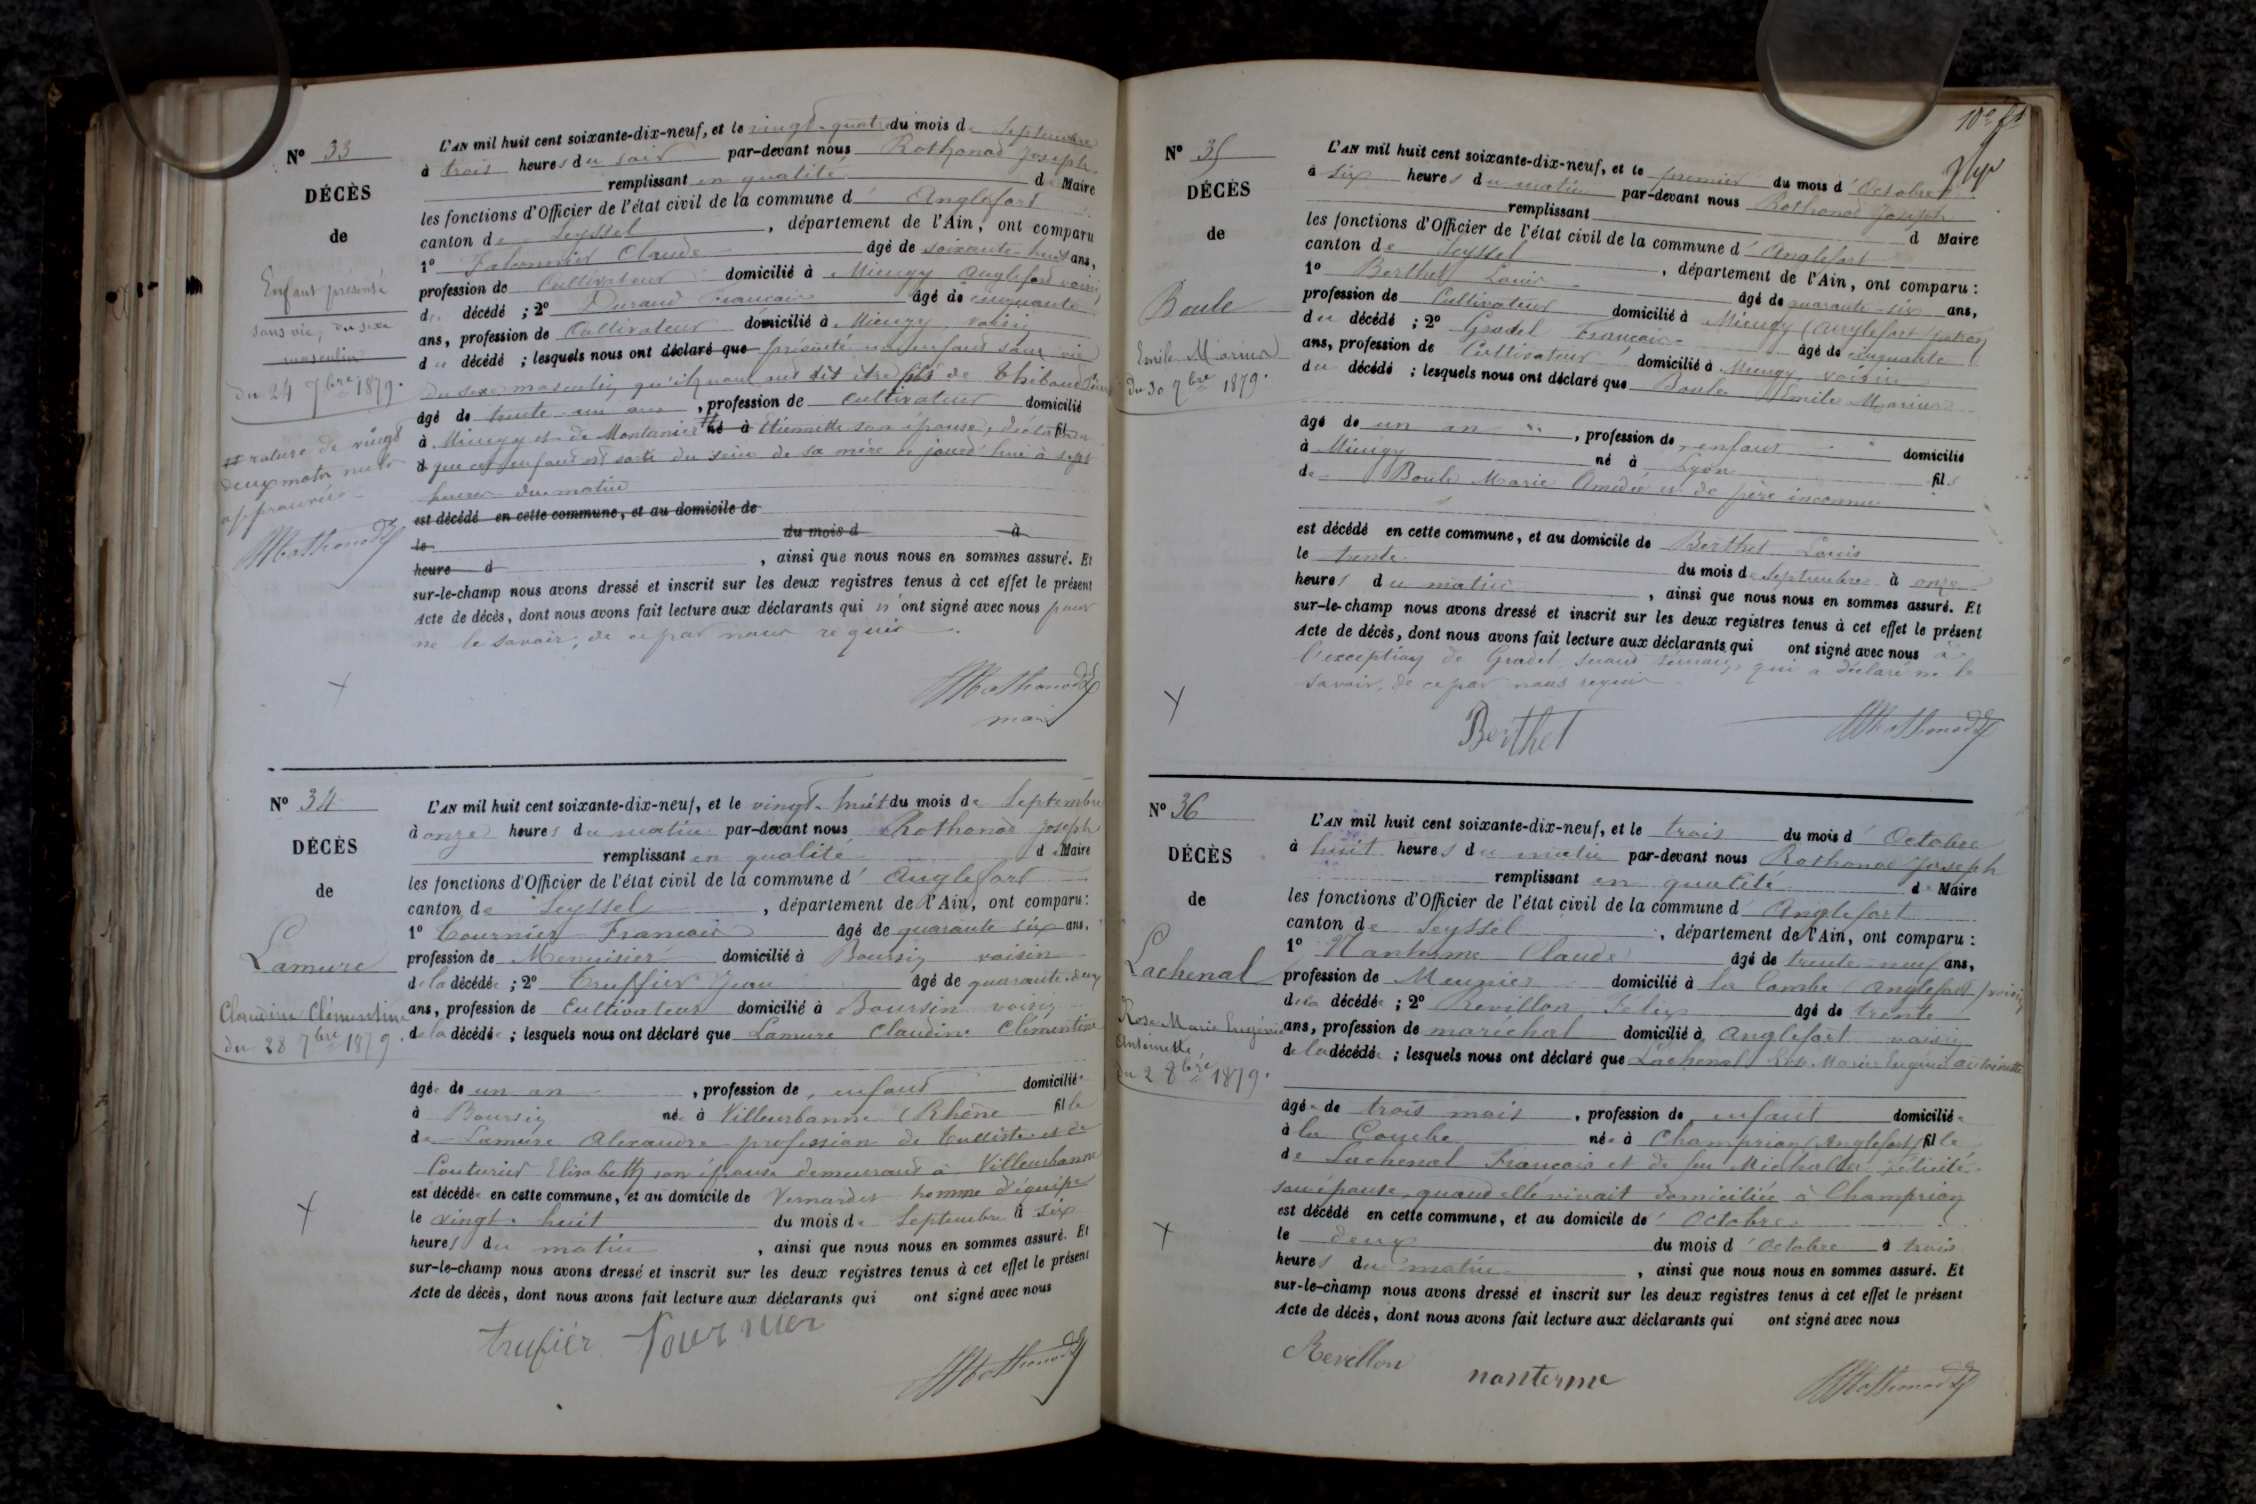 N° 33
DÉCÈS
de
Enfant présenté
sans vie, du sexe
masculin
du 24 7bre 1879.
rature de vingt
deux mots nuls
approuvée
L'AN mil huit cent soixante-dix-neuf, et le vingt-quatre du mois de Septembre
à trois heures du soir par-devant nous Rothonod Joseph
remplissant en qualité de Maire
les fonctions d'Officier de l'état civil de la commune d'Anglefort
canton de Seyssel, département de l'Ain, ont comparu
1° Falconnier Claude âgé de soixante-huit ans,
profession de Cultivateur domicilié à Mieugy Anglefort voisin
du décédé ; 2° Durand François âgé de cinquante
ans, profession de Cultivateur domicilié à Mieugy, voisin
du décédé ; lesquels nous ont déclaré que présenté un enfant sans vie
du sexe masculin, qu'ils nous ont dit être fils de Thibaud
âgé de trente un ans, profession de Cultivateur domicilié
à Mieugy et de Montanier né à Etiennette son épouse, déclarant fil
d que cet enfant est sorti du sein de sa mère ce jourd'hui à sept
heures du matin
est décédé en cette commune, et au domicile de
le du mois d à
heure d , ainsi que nous nous en sommes assuré. Et
sur-le-champ nous avons dressé et inscrit sur les deux registres tenus à cet effet le présent
Acte de décès, dont nous avons fait lecture aux déclarants qui n'ont signé avec nous pour
ne le savoir, de ce par nous requis.
Rothonod
maire
N° 34
DÉCÈS
de
Lamure
Claudine Clémentine
du 28 7bre 1879.
L'AN mil huit cent soixante-dix-neuf, et le vingt-huit du mois de Septembre
à onze heures du matin par-devant nous Rothonod Joseph
remplissant en qualité de Maire
les fonctions d'Officier de l'état civil de la commune d'Anglefort
canton de Seyssel, département de l'Ain, ont comparu :
1° Tournier François âgé de quarante six ans,
profession de Menuisier domicilié à Boursin voisin
de la décédée ; 2° Truffier Jean âgé de quarante-deux
ans, profession de Cultivateur domicilié à Boursin voisin
de la décédée ; lesquels nous ont déclaré que Lamure Claudine Clémentine
âgée de un an, profession de enfant domiciliée
à Boursin née à Villeurbanne (Rhône fille
de Lamure Alexandre profession de Tulliste et de
Couturier Elisabeth son épouse demeurant à Villeurbanne
est décédée en cette commune, et au domicile de Vernardet homme d'équipe
le vingt-huit du mois de Septembre à six
heures du matin, ainsi que nous nous en sommes assuré. Et
sur-le-champ nous avons dressé et inscrit sur les deux registres tenus à cet effet le présent
Acte de décès, dont nous avons fait lecture aux déclarants qui ont signé avec nous
trufier Tournier
Rothonod
N° 35
DÉCÈS
de
Boule
Emile Marius
du 30 7bre 1879.
L'AN mil huit cent soixante-dix-neuf, et le premier du mois d'Octobre
à six heures du matin par-devant nous Rothonod Joseph
remplissant d Maire
les fonctions d'Officier de l'état civil de la commune d'Anglefort
canton de Seyssel, département de l'Ain, ont comparu :
1° Berthet Louis âgé de quarante-six ans,
profession de Cultivateur domicilié à Mieugy (Anglefort)
du décédé ; 2° Gradel François âgé de cinquante
ans, profession de Cultivateur domicilié à Mieugy voisin
du décédé ; lesquels nous ont déclaré que Boule Emile Marius
âgé de un an, profession de enfant domicilié
à Mieugy né à Lyon fils
de Boule Marie Amédée et de père inconnu
est décédé en cette commune, et au domicile de Berthet Louis
le trente du mois de Septembre à onze
heures du matin, ainsi que nous nous en sommes assuré. Et
sur-le-champ nous avons dressé et inscrit sur les deux registres tenus à cet effet le présent
Acte de décès, dont nous avons fait lecture aux déclarants qui ont signé avec nous à
l'exception de Gradel, second témoin, qui a déclaré ne le
savoir, de ce par nous requis
Berthet
Rothonod
N° 36
DÉCÈS
de
Lachenal
Rose Marie Eugénie
Antoinette
du 2 8bre 1879.
L'AN mil huit cent soixante-dix-neuf, et le trois du mois d'Octobre
à huit heures du matin par-devant nous Rothonod Joseph
remplissant en qualité de Maire
les fonctions d'Officier de l'état civil de la commune d'Anglefort
canton de Seyssel, département de l'Ain, ont comparu :
1° Nanterme Claude âgé de trente-neuf ans,
profession de Meunier domicilié à la Combe (Anglefort) voisin
de la décédée ; 2° Revillon Félix âgé de trente
ans, profession de maréchal domicilié à Anglefort voisin
de la décédée ; lesquels nous ont déclaré que Lachenal Rose Marie Eugénie antoinette
âgée de trois mois, profession de enfant domiciliée
à la Combe née à Champrion (Anglefort) fille
de Lachenal François et de feu Michallet félicité
son épouse, quand elle vivait domiciliée à Champrion
est décédé en cette commune, et au domicile de Octobre
le deux du mois d'Octobre à trois
heures du matin, ainsi que nous nous en sommes assuré. Et
sur-le-champ nous avons dressé et inscrit sur les deux registres tenus à cet effet le présent
Acte de décès, dont nous avons fait lecture aux déclarants qui ont signé avec nous
Revillon nanterme
Rothonod